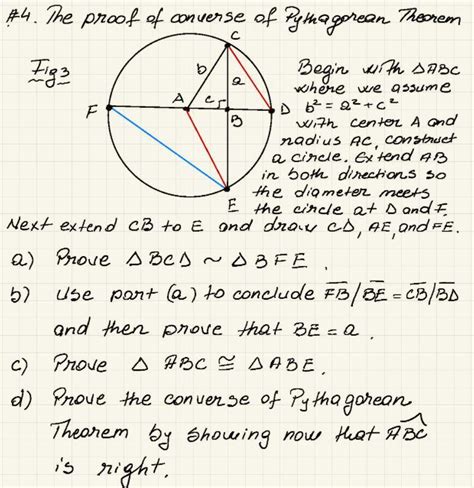 #4. The proof of converse of Pythagorean Theorem
Fig 3
C
b
a
A
c
F
B
D
E
Begin with ΔABC
where we assume
b² = a² + c²
with center A and
radius AC, construct
a circle. Extend AB
in both directions so
the diameter meets
the circle at D and F.
Next extend CB to E and draw CD, AE, and FE.
a) Prove Δ BCD ~ Δ BFE.
b) Use part (a) to conclude FB/BE = CB/BD
and then prove that BE = a.
c) Prove Δ ABC ≅ Δ ABE.
d) Prove the converse of Pythagorean
Theorem by showing now that ABC
is right.